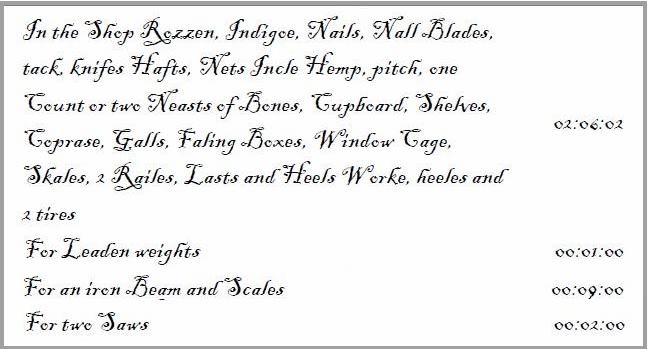 In the Shop Rozzen, Indigoe, Nails, Nall Blades,
tack, knifes Hafts, Nets Incle Hemp, pitch, one
Count or two Neasts of Bones, Cupboard, Shelves, 02:06:02
Coprase, Galls, Faling Boxes, Window Cage,
Skales, 2 Railes, Lasts and Heels Worke, heeles and
2 tires
For Leaden weights 00:01:00
For an iron Beam and Scales 00:09:00
For two Saws 00:02:00